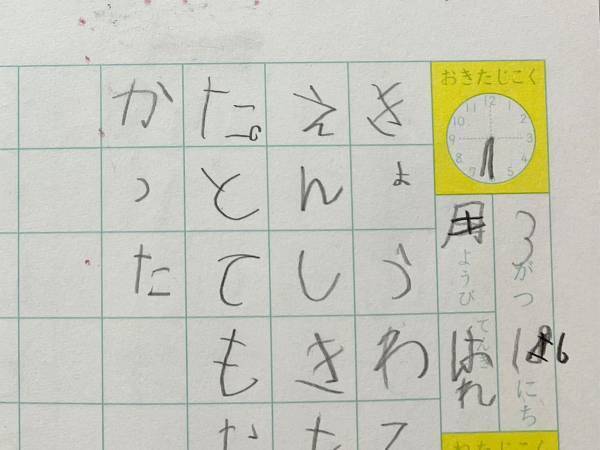 おきたじこく
12
1
2
3
5
7
8
9
10
11
3がつ
16にち
ようび
てんき
はれ
ねたじこく
きょうわ
えんしき
た。とてもな
かった